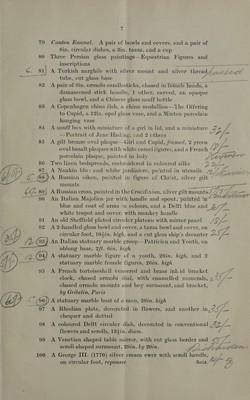 7
79 Canton Enamel. A pair of bowls and covers, and a pair of
6in. circular dishes, a 4in. tazza, and a cup
80 Three Persian glass paintings—Equestrian Figures and
inscriptions
81 A Turkish narghile with silver mount and silver thread
tube, cut glass base
82 A pair of 8in. ormolu candlesticks, chased in female heads, a
damascened stick handle, 1 other, carved, an opaque
glass bowl, and a Chinese glass snuff bottle
83 A Copenhagen china fish, a china medallion—The Offering
to Cupid, a 12in. opal glass vase, and a Minton porcelain
hanging vase
84 A snuff box with miniature of a girl in lid, and a miniature
—Portrait of Jane Hading, and 2 others
85 A gilt bronze oval plaque—Girl and Cupid, framed, 2 green
oval basalt plaques with white cameo figures, and a French
porcelain plaque, painted in lady
86 Two linen bedspreads, embroidered in coloured silks
87 A Nankin blue and white jardiniere, painted in utensils
88 A Russian eikon, painted in figure of Christ, silver gilt
mounts
89 A Russian cross, painted in the Crucifixion, silver gilt mounts
90 An Italian Majolica jar with handle and spout, painted in
blue and coat of arms in colours, and a Delft blue and
white teapot and cover, with monkey handle
91 An old Sheffield plated circular plateau with mirror panel
92 A 2-handled glass bowl and cover, a tazza bowl and cover, on
circular foot, high, and a cut glass ship's decanter
93 An Italian statuary marble group—Patrician and Youth, on
oblong base, 27, 6in. high
94 A statuary marble figure of a youth, 26in. high, and 2
statuary marble female busts, 26in. high
95 A French tortoiseshell veneered and brass inlaid bracket
clock, chased ormolu dial, with enamelled numerals,
chased ormolu mounts and boy surmount, and bracket,
by Gribelin, Paris
96 A statuary marble bust of a man, 26in. high
97 A Rhodian plate, decorated in flowers, and another in
chequer and dotted
98 A coloured Delft circular dish, decorated in conventional
flowers and scrolls, diam.
99 A Venetian shaped table mirror, with cut glass border and
scroll-shaped surmount, 28in. by 20in.
100 A George III. (1770) silver cream ewer with scroll handle,
on circular foot, repoussé